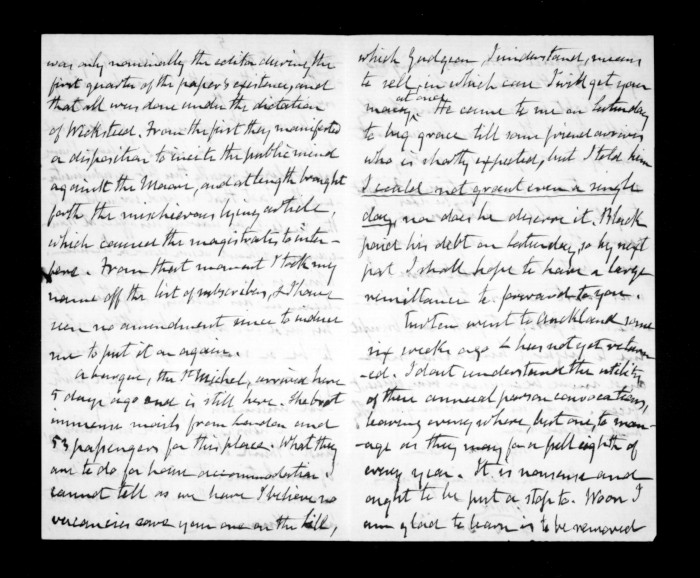 was only nominally the editor during the
first quarter of the paper's existence, and
that all was done under the dictation
of Wicksteed. From the first they manifested
a disposition to incite the public mind
against the Maori, and at length brought
forth the mischievous lying article,
which caused the magistrates to inter-
fere. From that moment I took my
name off the list of subscribers, & I have
seen no amendment since to induce
me to put it on again.
A barque, the St Michel, arrived here
5 days ago and is still here. She brot
immense mails from London and
53 passengers for this place. What they
are to do for house accommodation I
cannot tell as we have I believe no
vacancies save your one on the hill,
which Gudgeon I understand, means
to sell, in which case I will get your
money at once. He came to me on Saturday
to beg grace till some friend arrives
who is shortly expected, but I told him
I could not grant even a single
day, nor does he deserve it. Black
paid his debt on Saturday, so by next
post I shall hope to have a large
remittance to forward to you.
Turton went to Auckland some
six weeks ago & has not yet return-
-ed. I don't understand the utility
of these annual person convocations,
leaving everywhere, but one, to man-
-age as they may for a full eighth of
every year. It is nonsense and
ought to be put a stop to. Woon I
am glad to learn is to be removed